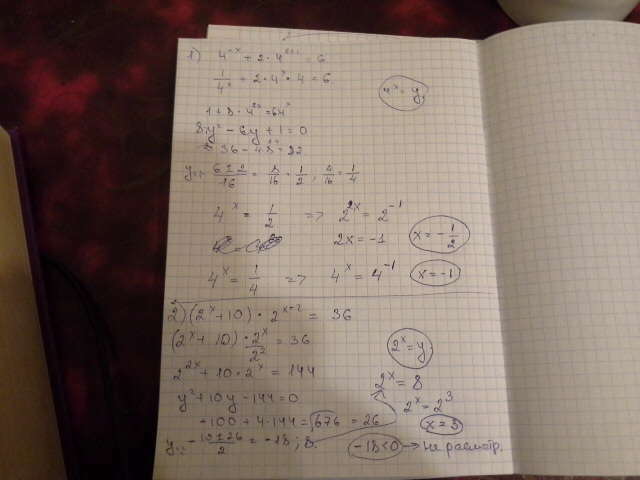 1) 4^-x + 2·4^x+1 = 6
1/4^x + 2·4^x·4 = 6
4^x = y
1 + 8·4^2x = 6·4^x
8y² - 6y + 1 = 0
36 - 4·8 = 2²
y₁,₂ = (6±2)/16 = 8/16 = 1/2, 4/16 = 1/4
4^x = 1/2 => 2^2x = 2^-1
2x = -1 x = -1/2
4^x = 1/4 => 4^x = 4^-1 x = -1
2) (2^x + 10)·2^x-2 = 36
(2^x + 10)·2^x/2² = 36
2^x = y
2^2x + 10·2^x = 144
2^x = 8
y² + 10y - 144 = 0
2^x = 2^3
100 + 4·144 = √676 = 26
x = 3
y₁,₂ = (-10±26)/2 = -18; 8.
-18<0 → не расмотр.